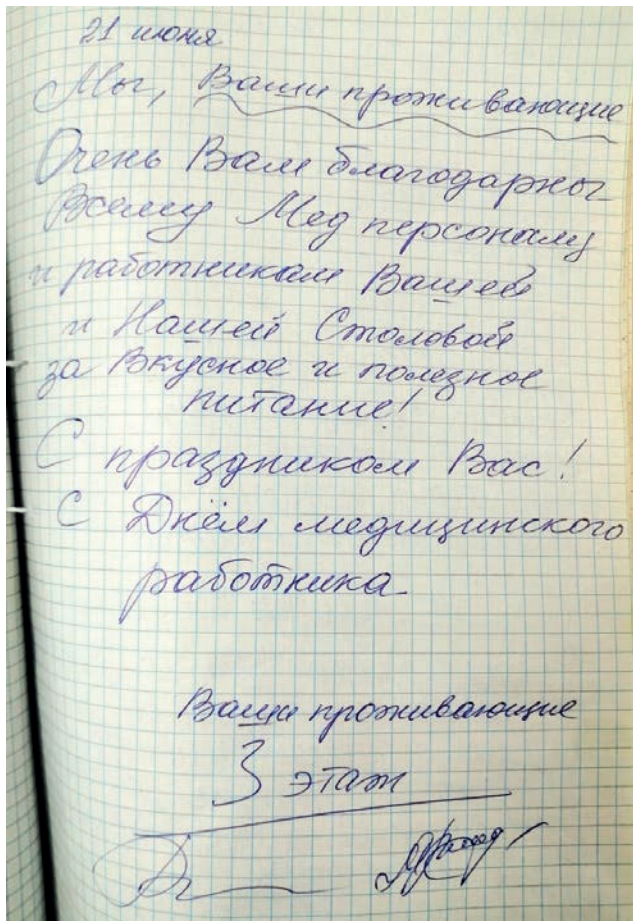 21 июня
Мы, Ваши проживающие
Очень Вам благодарны
Всему Мед персоналу
и работникам Вашей
и Нашей Столовой
за Вкусное и полезное
питание!
С праздником Вас!
С Днём медицинского
работника
Ваши проживающие
3 этаж